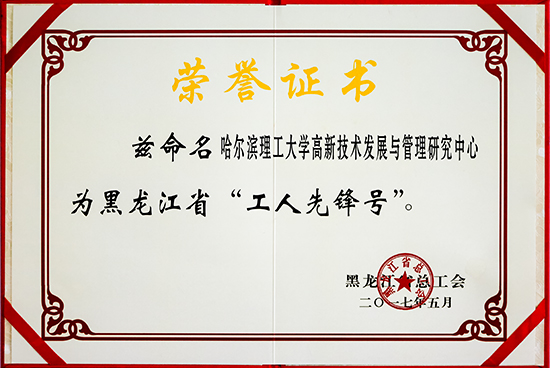 荣誉证书
兹命名哈尔滨理工大学高新技术发展与管理研究中心
为黑龙江省“工人先锋号”。
黑龙江省总工会
二〇一七年五月